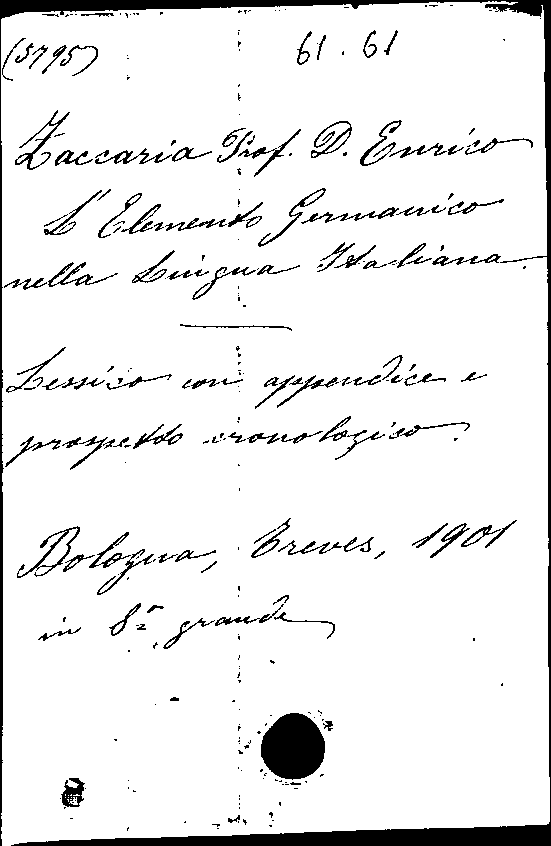 (5795) 61.61
Zaccaria Prof. D. Enrico
L'Elemento Germanico
nella Lingua Italiana.
Lessico con appendice e
prospetto cronologico.
Bologna, Treves, 1901
in 8º grande